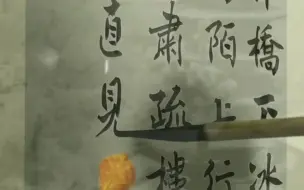 橋下冰
陌上行
肅疏樓
直見